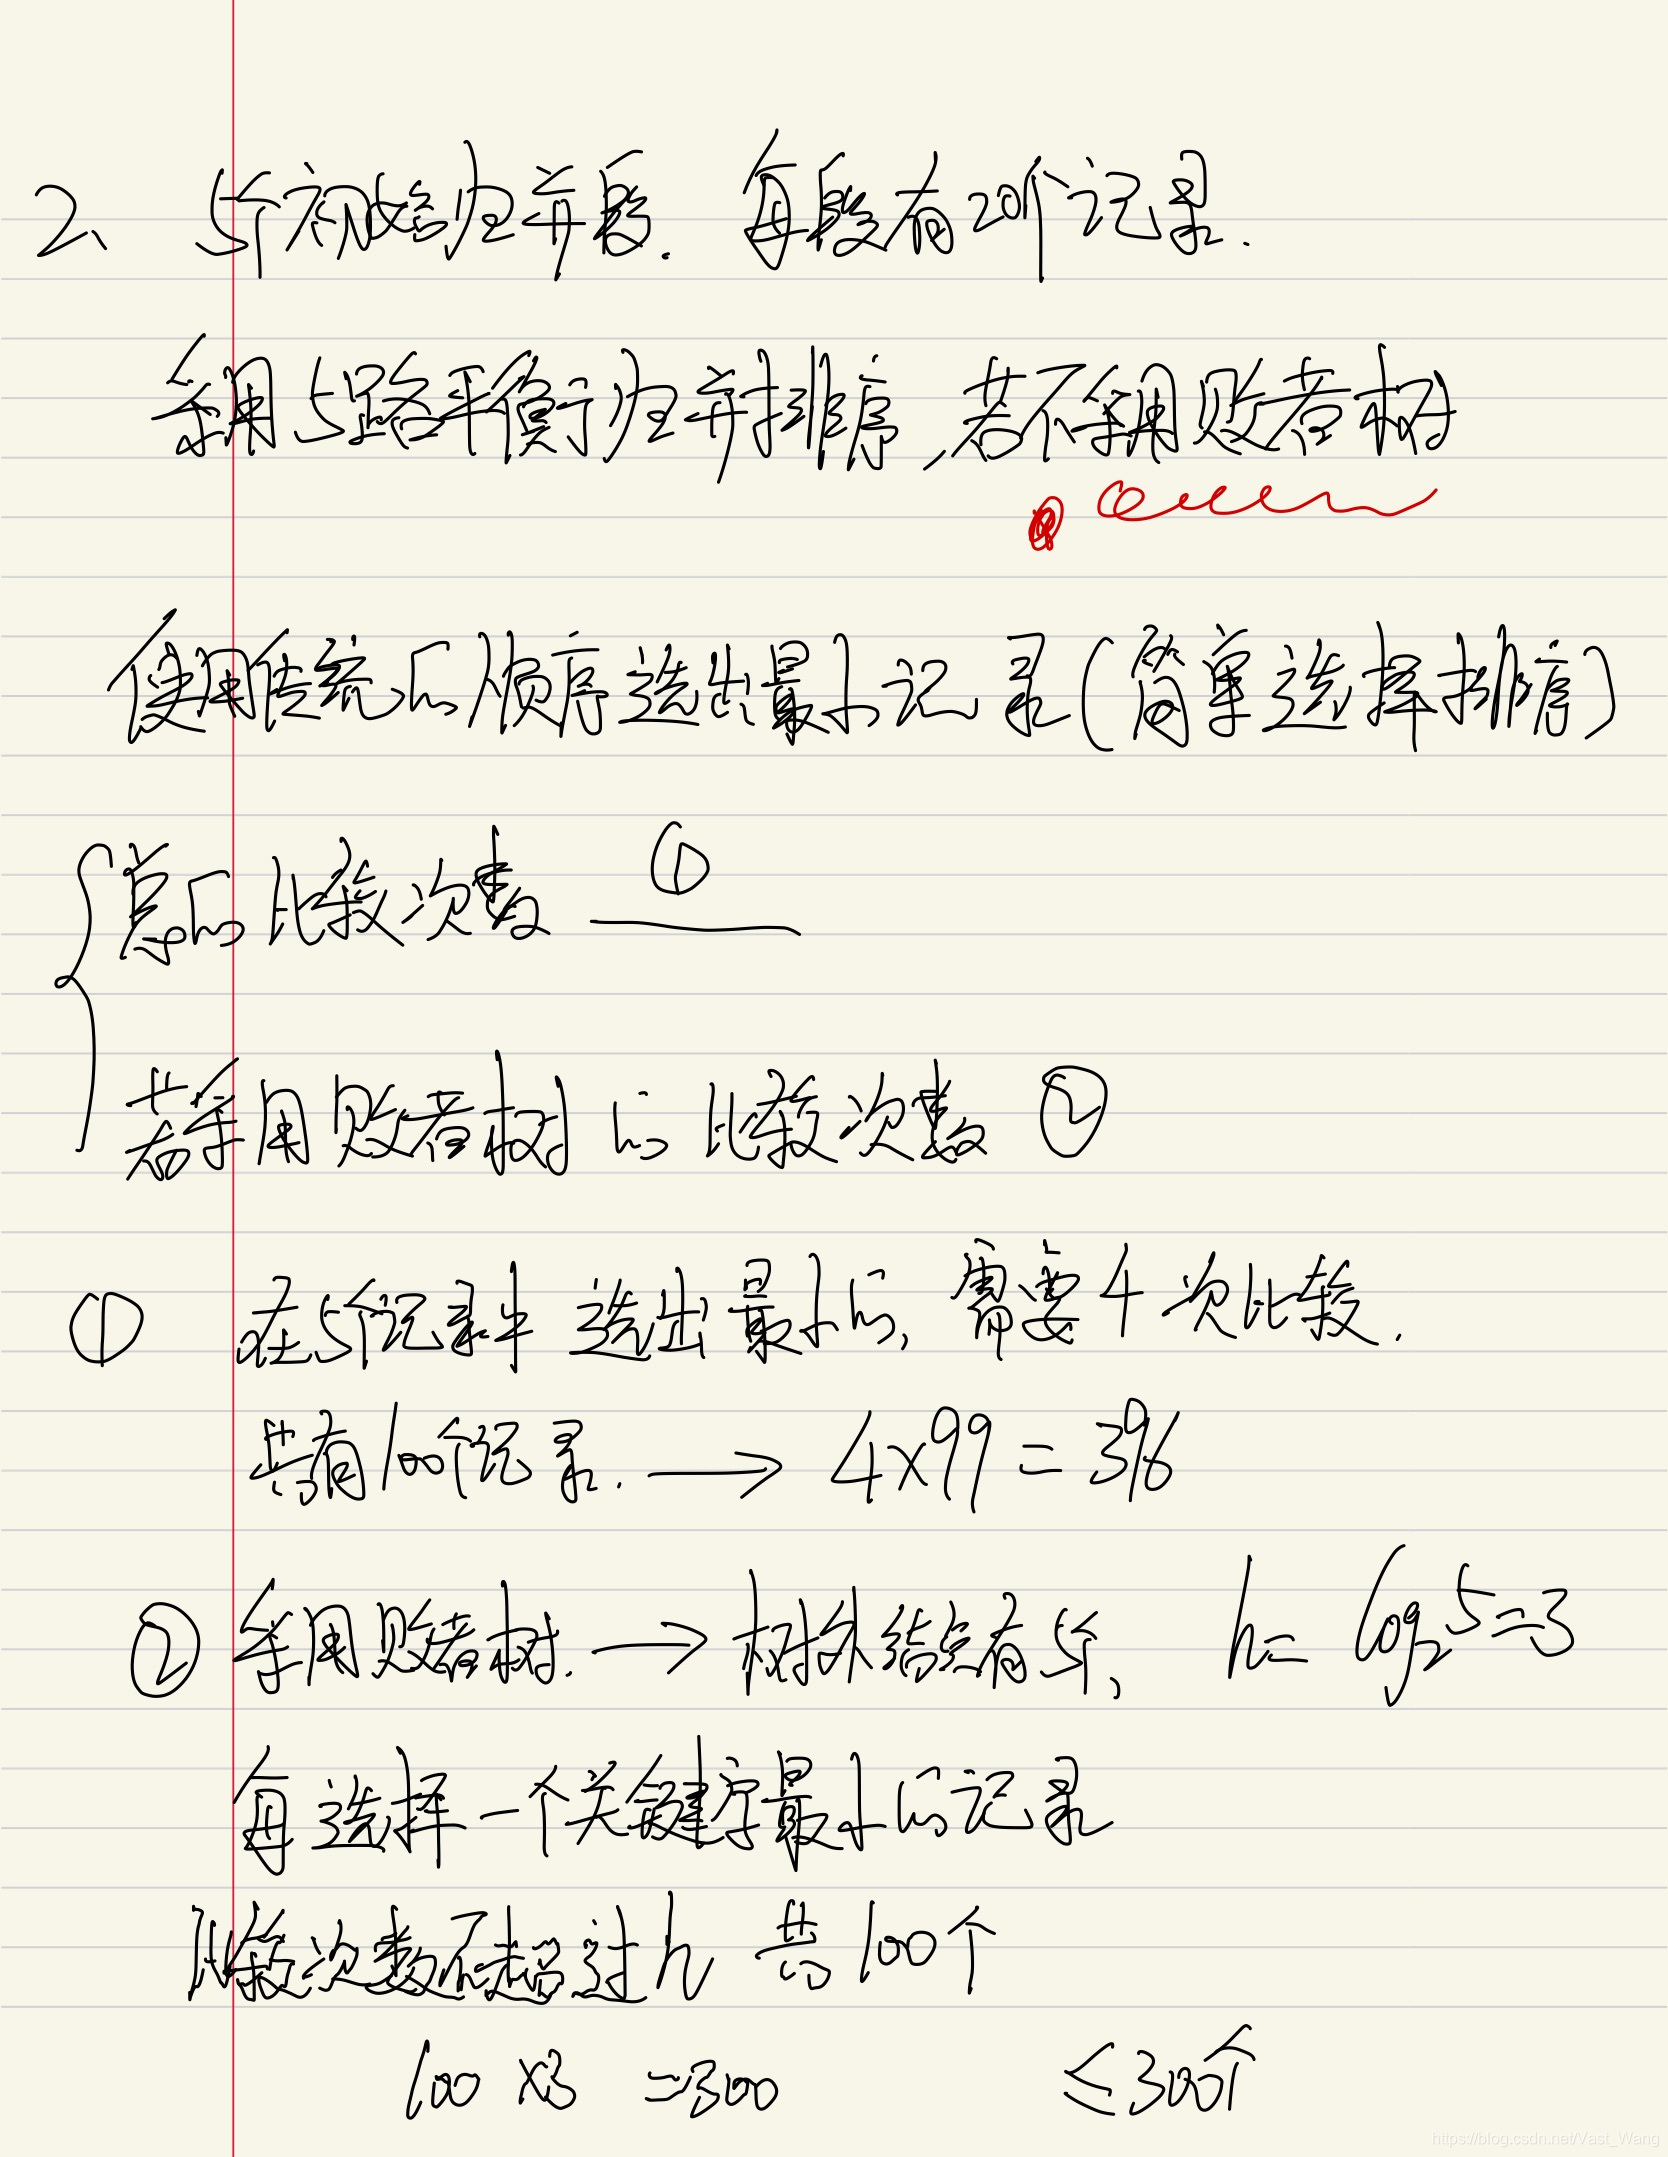 2、 5个初始归并段. 每段有20个记录.
采用5路平衡归并排序,若不采用败者树
使用传统的顺序选出最小记录(简单选择排序)
总的比较次数 ①
若采用败者树的比较次数 ②
① 在5个记录中选出最小的,需要4次比较.
共有100个记录. → 4×99=396
② 采用败者树. → 树外结点有5个, h= log₂5=3
每选择一个关键字最小的记录
比较次数不超过h 共100个
100 ×3 =300 ≤300个
https://blog.csdn.net/Vast_Wang